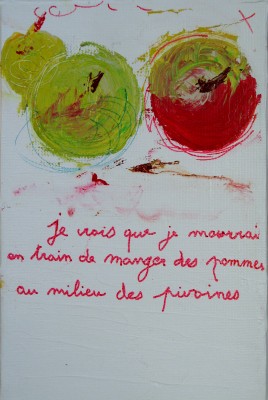 Je vois que je mourrai
en train de manger des pommes
au milieu des pivoines